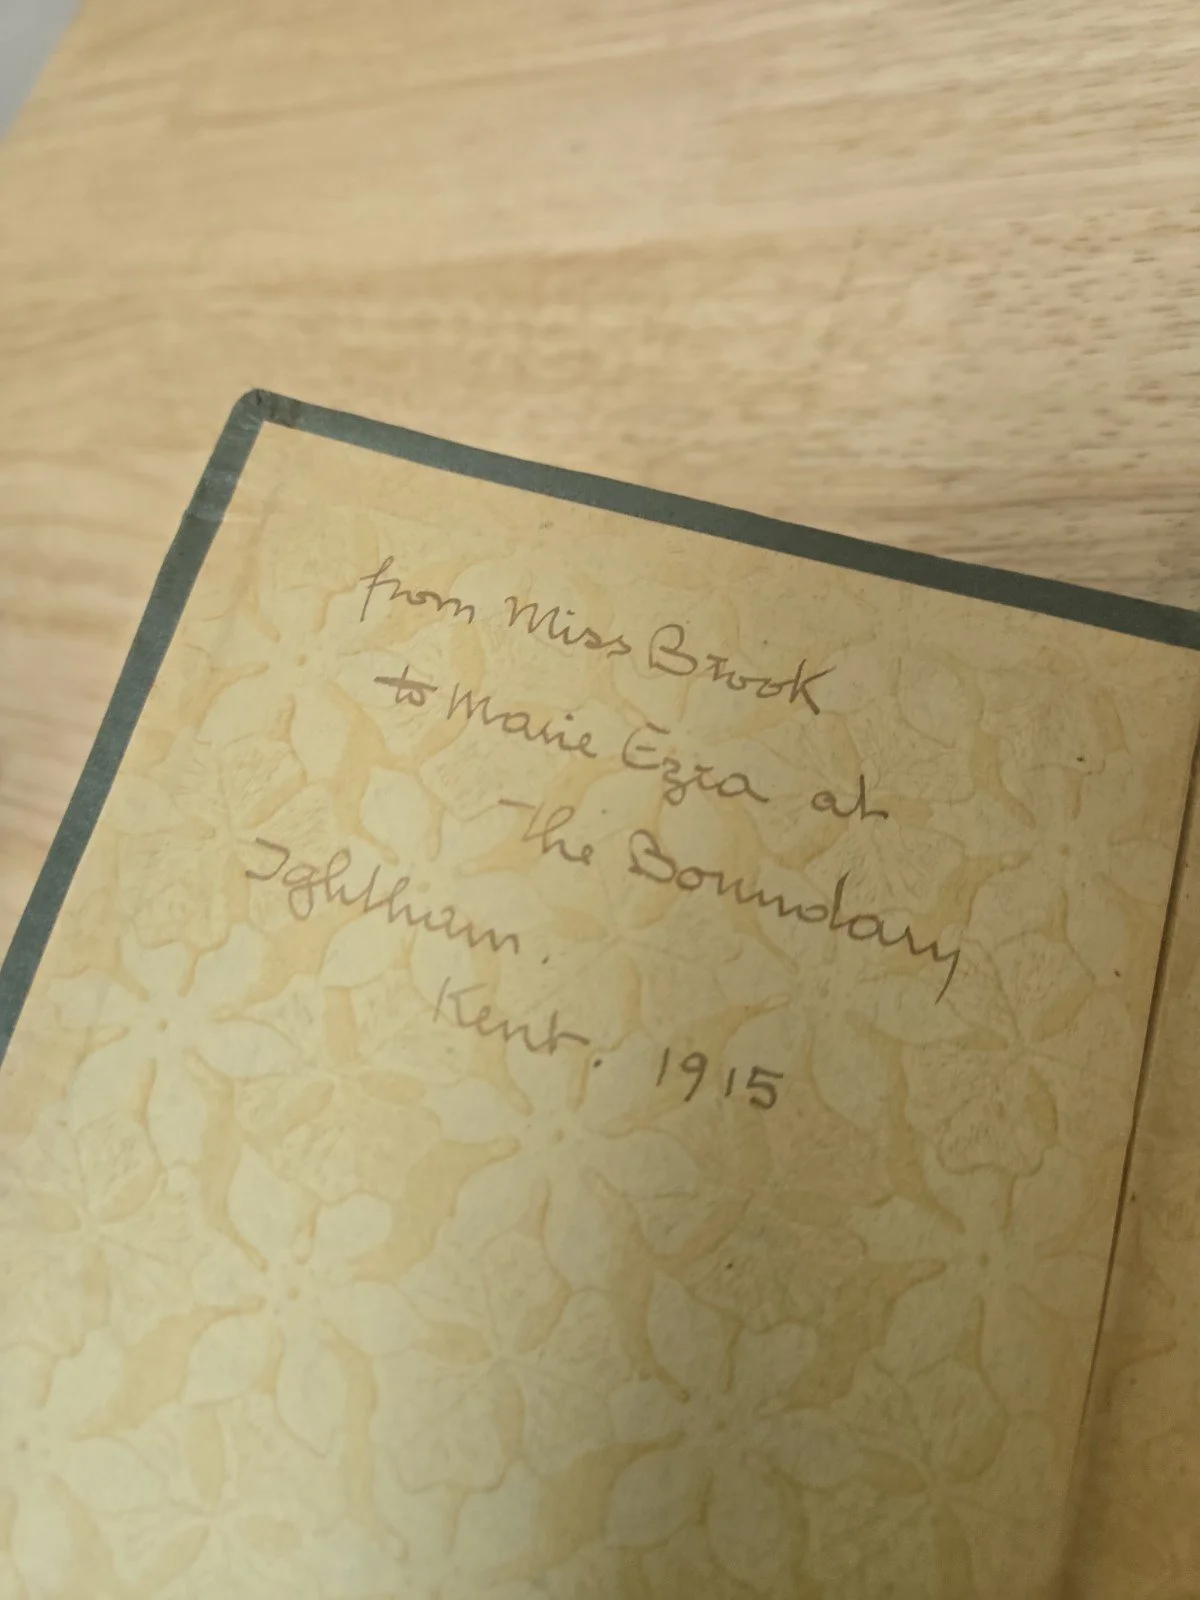 from Miss Brook
to Marie Ezra at
The Boundary
Ightham.
Kent. 1915